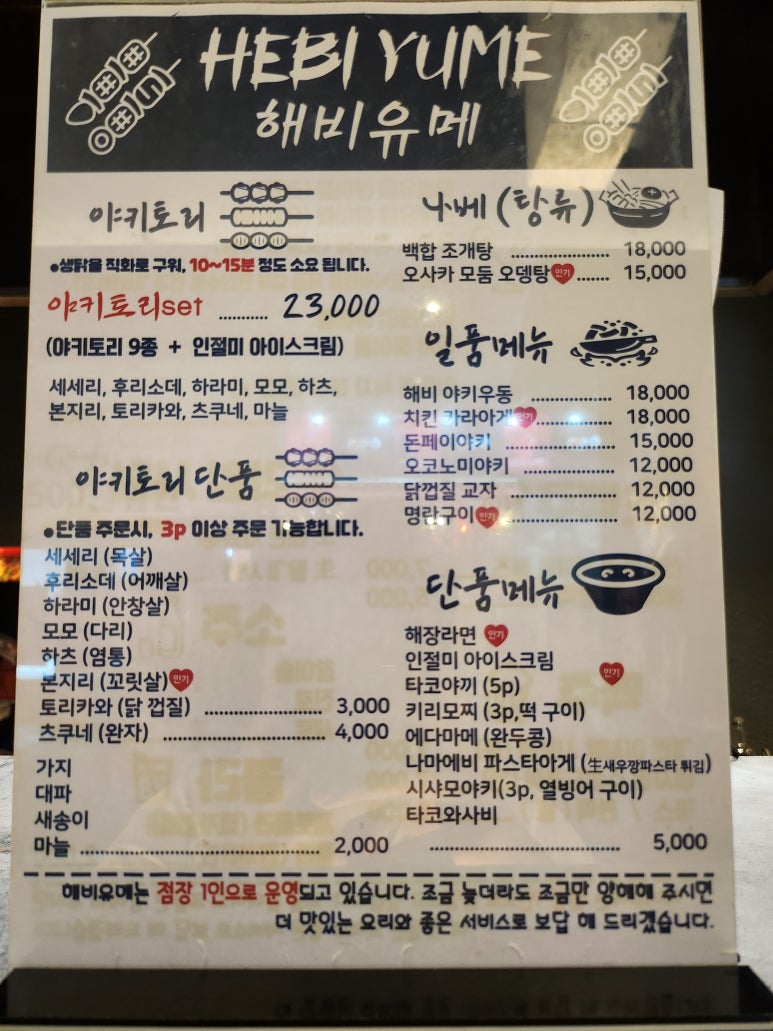 HEBI YUME
해비유메
야키토리
●생닭을 직화로 구워, 10~15분 정도 소요 됩니다.
야키토리set .......... 23,000
(야키토리 9종 + 인절미 아이스크림)
세세리, 후리소데, 하라미, 모모, 하츠,
본지리, 토리카와, 츠쿠네, 마늘
야키토리 단품
●단품 주문시, 3p 이상 주문 가능합니다.
세세리 (목살)
후리소데 (어깨살)
하라미 (안창살)
모모 (다리)
하츠 (염통)
본지리 (꼬릿살) 인기
토리카와 (닭 껍질) .......... 3,000
츠쿠네 (완자) .......... 4,000
가지
대파
새송이
마늘 .......... 2,000
나베 (탕류)
백합 조개탕 .......... 18,000
오사카 모둠 오뎅탕 인기 .......... 15,000
일품메뉴
해비 야키우동 .......... 18,000
치킨 카라아게 인기 .......... 18,000
돈페이야키 .......... 15,000
오코노미야키 .......... 12,000
닭껍질 교자 .......... 12,000
명란구이 인기 .......... 12,000
단품메뉴
해장라면 인기
인절미 아이스크림 인기
타코야끼 (5p)
키리모찌 (3p,떡 구이)
에다마메 (완두콩)
나마에비 파스타아게 (生새우깡파스타 튀김)
시샤모야키(3p, 열빙어 구이)
타코와사비
.......... 5,000
해비유메는 점장 1인으로 운영되고 있습니다. 조금 늦더라도 조금만 양해해 주시면
더 맛있는 요리와 좋은 서비스로 보답 해 드리겠습니다.